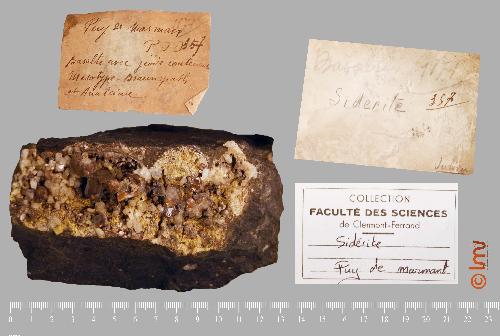 Puy de Marmant
P.D 357
Basalte avec géode contenant
Mésotype - Braunspath
et Analcime
357
Sidérite 357
COLLECTION
FACULTÉ DES SCIENCES
de Clermont-Ferrand
Sidérite
Puy de marmant
© lmv
0 1 2 3 4 5 6 7 8 9 10 11 12 13 14 15 16 17 18 19 20 21 22 23